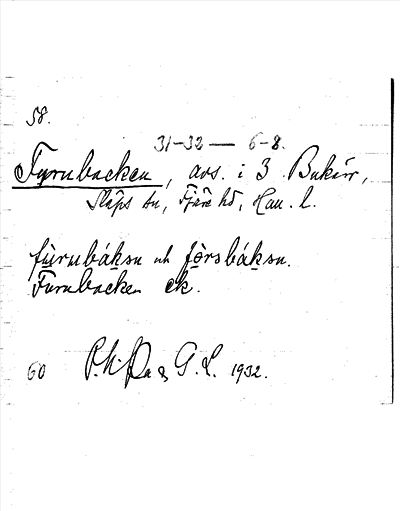 58.
31-32 — 6-8.
Furubacken, avs. i 3 Bukärr,
Släps sn, Fjäre hd, Hall. l.
fùrubákən och fòrsbákən.
Furubacken ek.
60 P.N. & G.L. 1932.